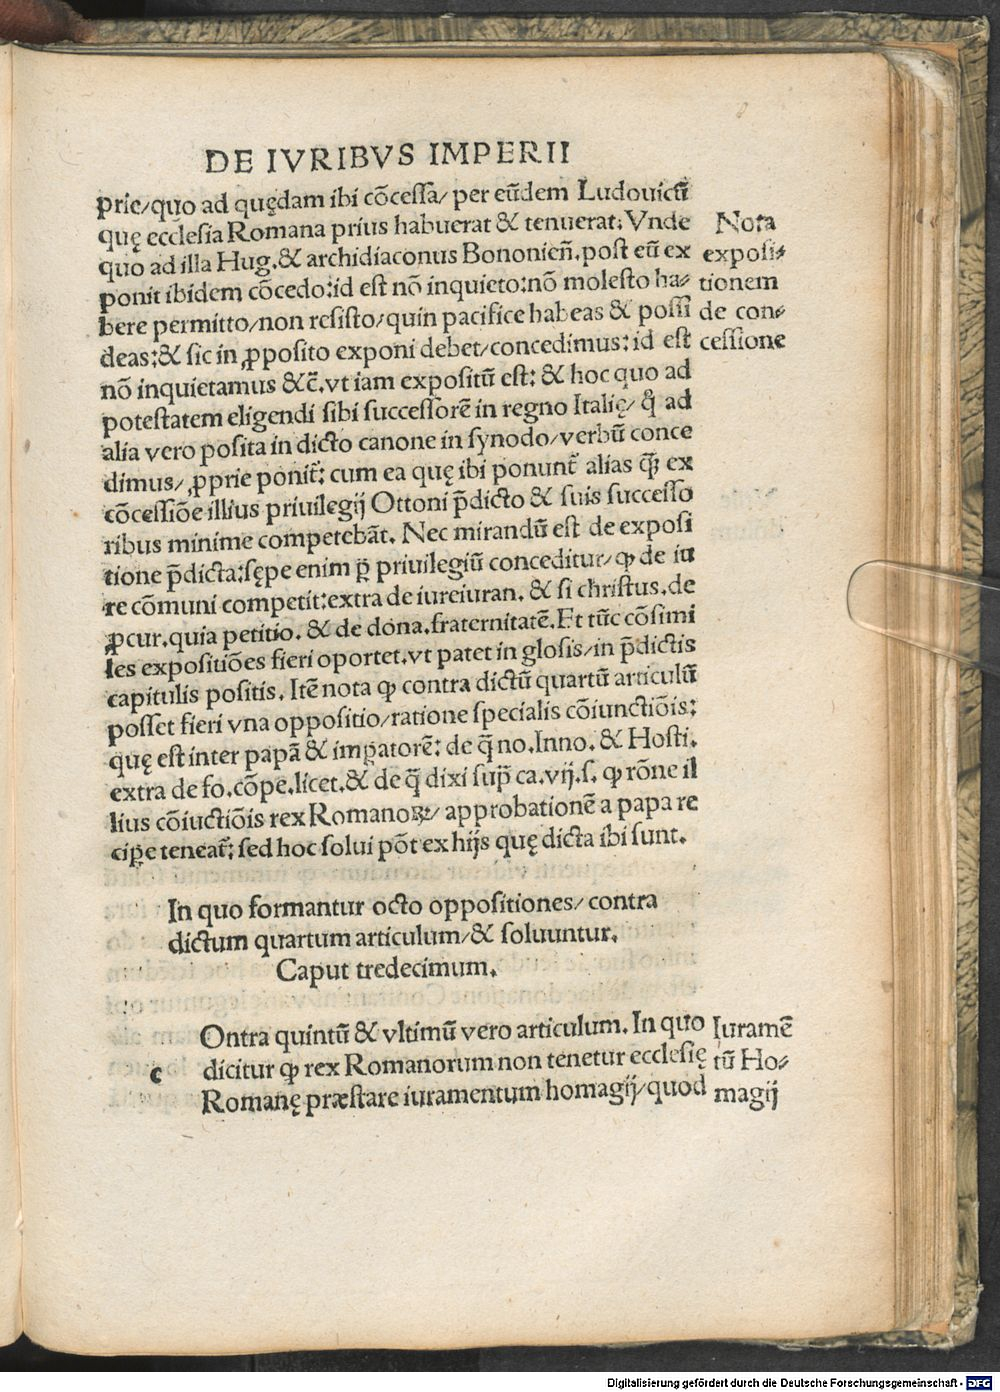 DE IVRIBVS IMPERII
prie/quo ad quędam ibi cōcessa/ per eūdem Ludouicū
quę ecclesia Romana prius habuerat & tenuerat: Vnde
quo ad illa Hug.& archidiaconus Bononień.post eū ex
ponit ibidem cōcedo:id est nō inquieto:nō molesto ha⸗
bere permitto/non resisto/quin pacifice habeas & possi
deas:& sic in ꝓposito exponi debet/concedimus: id est
nō inquietamus &c̄.vt iam expositū est: & hoc quo ad
potestatem eligendi sibi successorē in regno Italię/ q̊ ad
alia vero posita in dicto canone in synodo/verbū conce
dimus/ ꝓprie ponit̃: cum ea quę ibi ponunt̃ alias q̃ꝫ ex
cōcessiōe illius priuilegij Ottoni p̄dicto & suis successo
ribus minime competebāt. Nec mirandū est de exposi
tione p̄dicta:sępe enim ꝑ priuilegiū conceditur/ ꝙ de iu
re cōmuni competit:extra de iureiuran. & si christus.de
ꝓcur.quia petitio. & de dona.fraternitatē.Et tūc cōsimi
les expositiōes fieri oportet.vt patet in glosis/in p̄dictis
capitulis positis. Itē nota ꝙ contra dictū quartū articulū
posset fieri vna oppositio/ratione specialis cōiunctiōis:
quę est inter papā & impatorē: de q̄ no.Inno. & Hosti.
extra de fo.cōpe.licet.& de q̄ dixi sup̄ ca.vij.s. ꝙ rōne il
lius cōiuctiōis rex Romanoꝝ/ approbationē a papa re
cipe teneat̃: sed hoc solui pōt ex hijs quę dicta ibi sunt.
Nota
exposi⸗
tionem
de con⸗
cessione
In quo formantur octo oppositiones/ contra
dictum quartum articulum/& soluuntur.
Caput tredecimum.
c
Ontra quintū & vltimū vero articulum. In quo
dicitur ꝙ rex Romanorum non tenetur ecclesię
Romanę præstare iuramentum homagij/quod
Iuramē
tū Ho⸗
magij
Digitalisierung gefördert durch die Deutsche Forschungsgemeinschaft - DFG